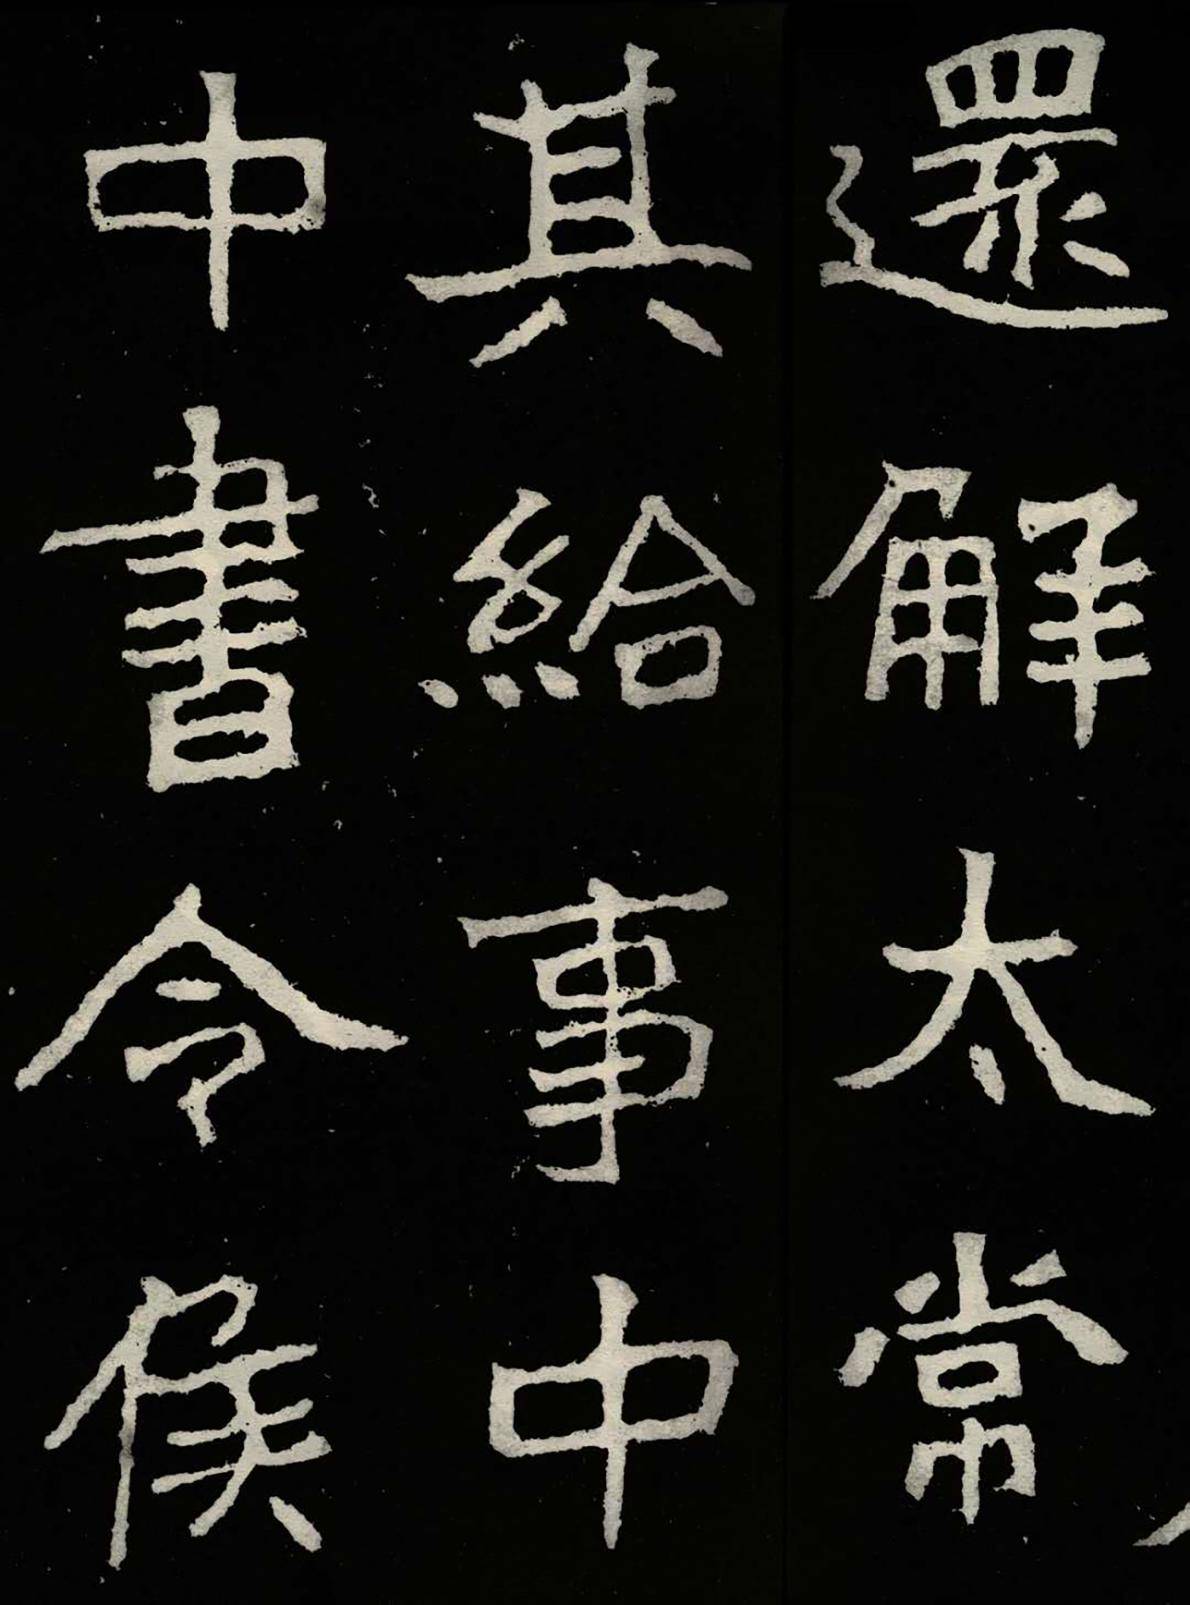 還解太常
其給事中
中書令侯